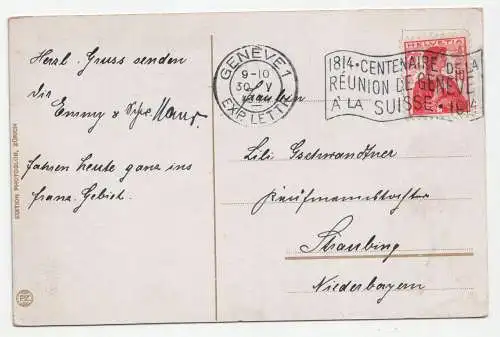 Herzl. Gruss senden
dir Emmy &
fahren heute ganz ins
franz. Gebiet.
EDITION PHOTOGLOB, ZÜRICH
PZ
GENÈVE 1
9-10
30 V
EXP. LETT
1814 • CENTENAIRE DE LA
RÉUNION DE GENÈVE
À LA SUISSE • 1914
HELVETIA
Fräulein
Lili Gschwandtner
Kaufmannstochter
Straubing
Niederbayern